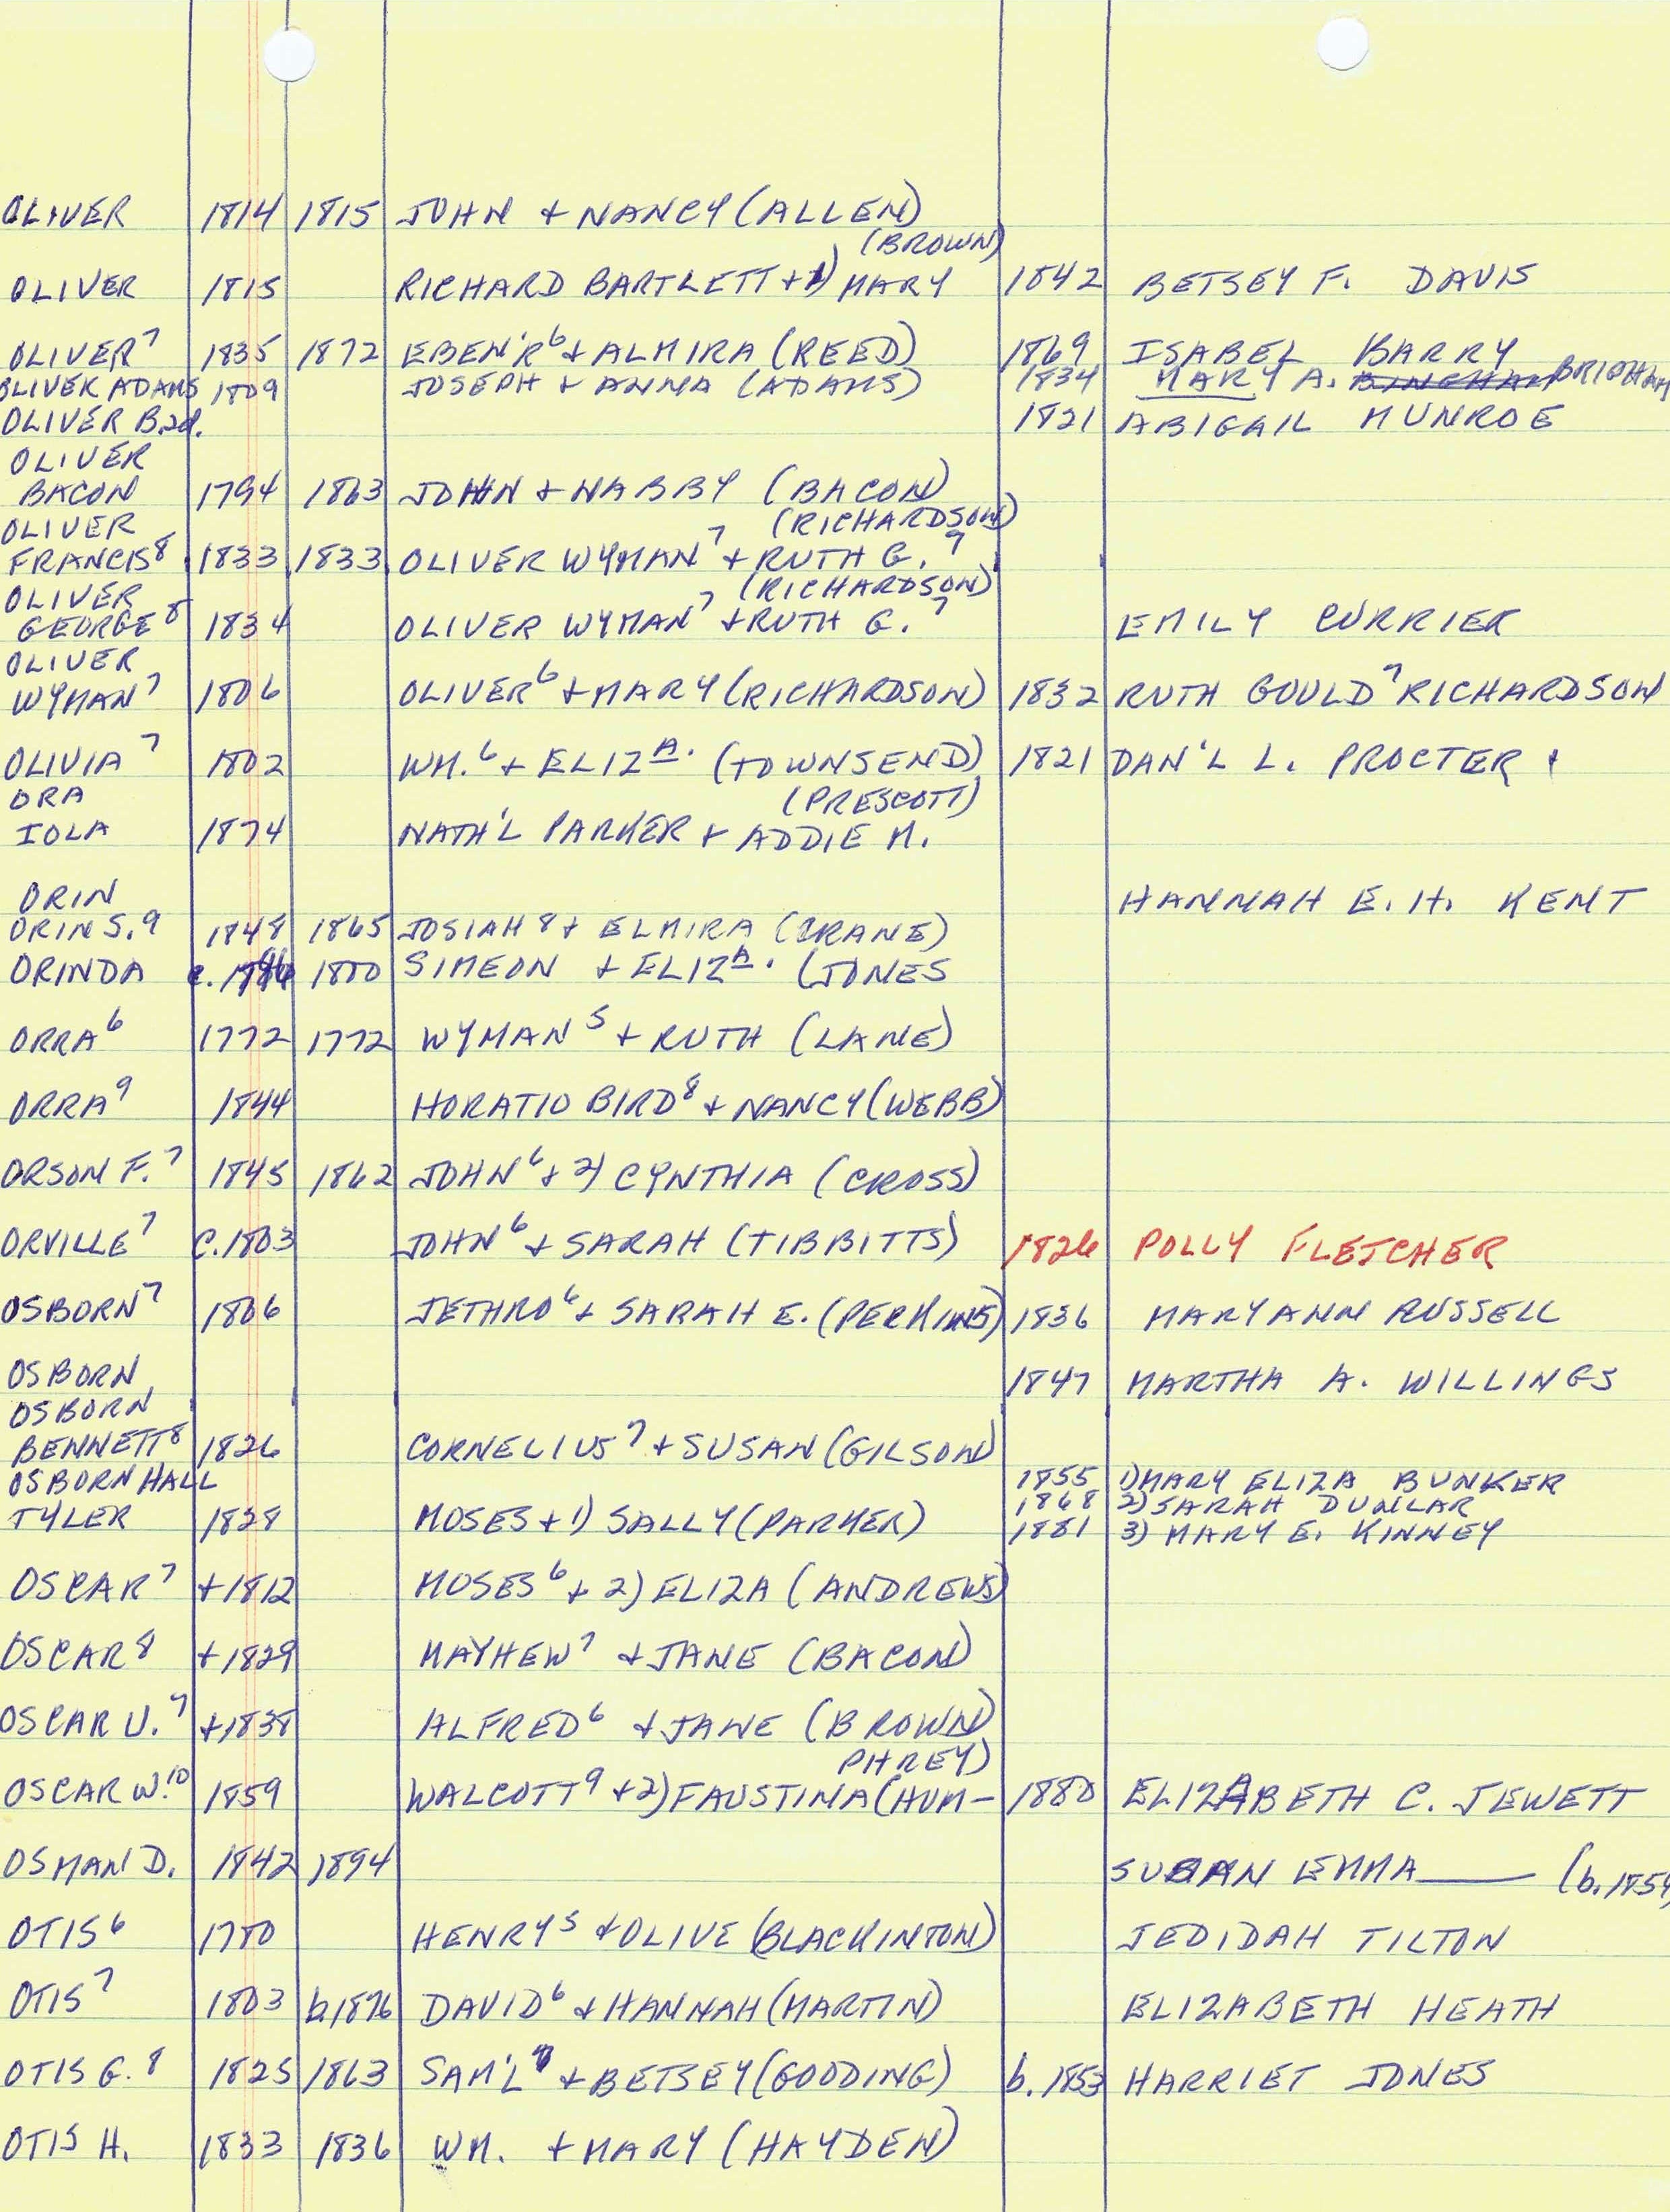 OLIVER 1814 1815 JOHN + NANCY (ALLEN)
(BROWN)
OLIVER 1815 RICHARD BARTLETT + 1) MARY 1842 BETSEY F. DAVIS
OLIVER⁷ 1835 1872 EBEN'R⁶ + ALMIRA (REED) 1869 ISABEL BARRY
OLIVER ADAMS 1809 JOSEPH + ANNA (ADAMS) 1834 MARY A. BINGHAM BRIGHAM
OLIVER B. 2d. 1821 ABIGAIL MUNROE
OLIVER
BACON 1794 1863 JOHN + NABBY (BACON)
OLIVER (RICHARDSON)
FRANCIS⁸ 1833 1833 OLIVER WYMAN⁷ + RUTH G.⁷
OLIVER (RICHARDSON)
GEORGE⁸ 1834 OLIVER WYMAN⁷ + RUTH G.⁷ EMILY CURRIER
OLIVER
WYMAN⁷ 1806 OLIVER⁶ + MARY (RICHARDSON) 1832 RUTH GOULD⁷ RICHARDSON
OLIVIA⁷ 1802 WM.⁶ + ELIZA. (TOWNSEND) 1821 DAN'L L. PROCTER
ORA (PRESCOTT)
IOLA 1874 NATH'L PARKER + ADDIE M.
ORIN HANNAH E. H. KENT
ORIN S.⁹ 1848 1865 JOSIAH⁸ + ELMIRA (CRANE)
ORINDA c. 1800 SIMEON + ELIZA. (JONES
ORRA⁶ 1772 1772 WYMAN⁵ + RUTH (LANE)
ORRA⁹ 1844 HORATIO BIRD⁸ + NANCY (WEBB)
ORSON F.⁷ 1845 1862 JOHN⁶ + 2) CYNTHIA (CROSS)
ORVILLE⁷ C. 1803 JOHN⁶ + SARAH (TIBBITTS) 1826 POLLY FLETCHER
OSBORN⁷ 1806 JETHRO⁶ + SARAH E. (PERKINS) 1836 MARY ANN RUSSELL
OSBORN 1847 MARTHA A. WILLINGS
OSBORN
BENNETT⁸ 1826 CORNELIUS⁷ + SUSAN (GILSON)
OSBORN HALL 1855 1) MARY ELIZA BUNKER
1868 2) SARAH DUNLAR
TYLER 1828 MOSES + 1) SALLY (PARKER) 1881 3) MARY E. KINNEY
OSCAR⁷ +1812 MOSES⁶ + 2) ELIZA (ANDREWS)
OSCAR⁸ +1829 MAYHEW⁷ + JANE (BACON)
OSCAR U.⁷ +1838 ALFRED⁶ + JANE (BROWN)
PHREY)
OSCAR W.¹⁰ 1859 WALCOTT⁹ + 2) FAUSTINA (HUM- 1880 ELIZABETH C. JEWETT
OSMAN D. 1842 1894 SUSAN EMMA ____ (b. 1854
OTIS⁶ 1780 HENRY⁵ + OLIVE (BLACKINTON) JEDIDAH TILTON
OTIS⁷ 1803 b. 1876 DAVID⁶ + HANNAH (MARTIN) ELIZABETH HEATH
OTIS G.⁸ 1825 1863 SAM'L⁷ + BETSEY (GOODING) b. 1853 HARRIET JONES
OTIS H. 1833 1836 WM. + MARY (HAYDEN)